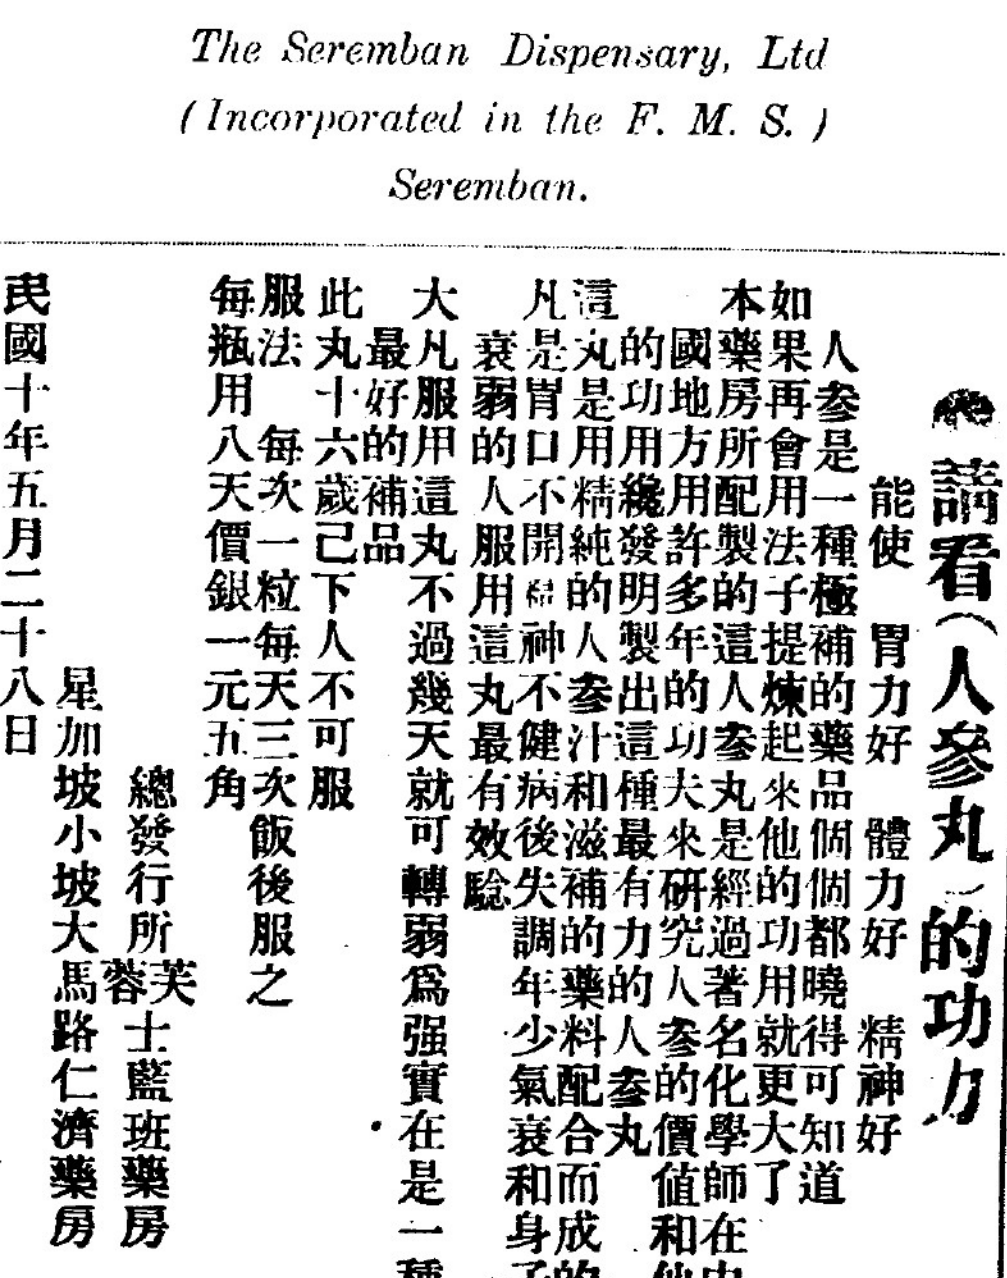 The Seremban Dispensary, Ltd
(Incorporated in the F. M. S.)
Seremban.
請看(人參丸)的功力
能使 胃力好 體力好 精神好
人參是一種極補的藥品個個都曉得可知道
如果再會用法子提煉起來他的功用就更大了
本藥房所配製的這人參丸是經過著名化學師在中
國地方用許多年的功夫來研究人參的價値和他
的功用纔發明製出這種最有力的人參丸
這丸是用精純的人參汁和滋補的藥料配合而成的
凡是胃口不開精神不健病後失調年少氣衰和身子
衰弱的人服用這丸最有效騐
大凡服用這丸不過幾天就可轉弱爲强實在是一種
最好的補品
此丸十六歲己下人不可服
服法 每次一粒每天三次飯後服之
每瓶用八天價銀一元五角
總發行所芙蓉士藍班藥房
星加坡小坡大馬路仁濟藥房
民國十年五月二十八日